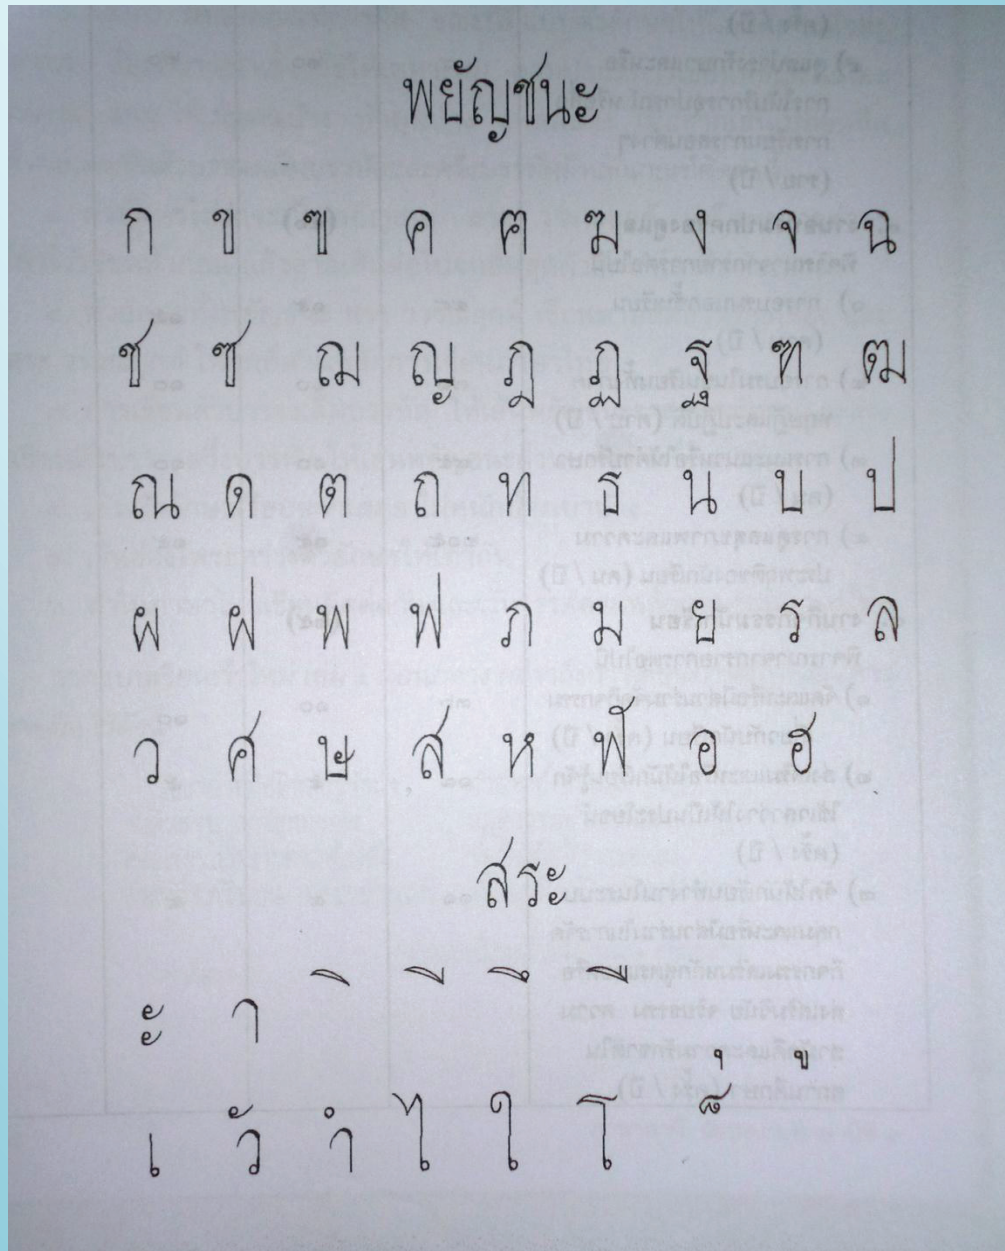 พยัญชนะ
ก ข ฃ ค ฅ ฆ ง จ ฉ
ช ซ ฌ ญ ฎ ฏ ฐ ฑ ฒ
ณ ด ต ถ ท ธ น บ ป
ผ ฝ พ ฟ ภ ม ย ร ล
ว ศ ษ ส ห ฬ อ ฮ
สระ
ะ า ิ ี ึ ื ุ ู
เ ัว ำ ไ ใ โ